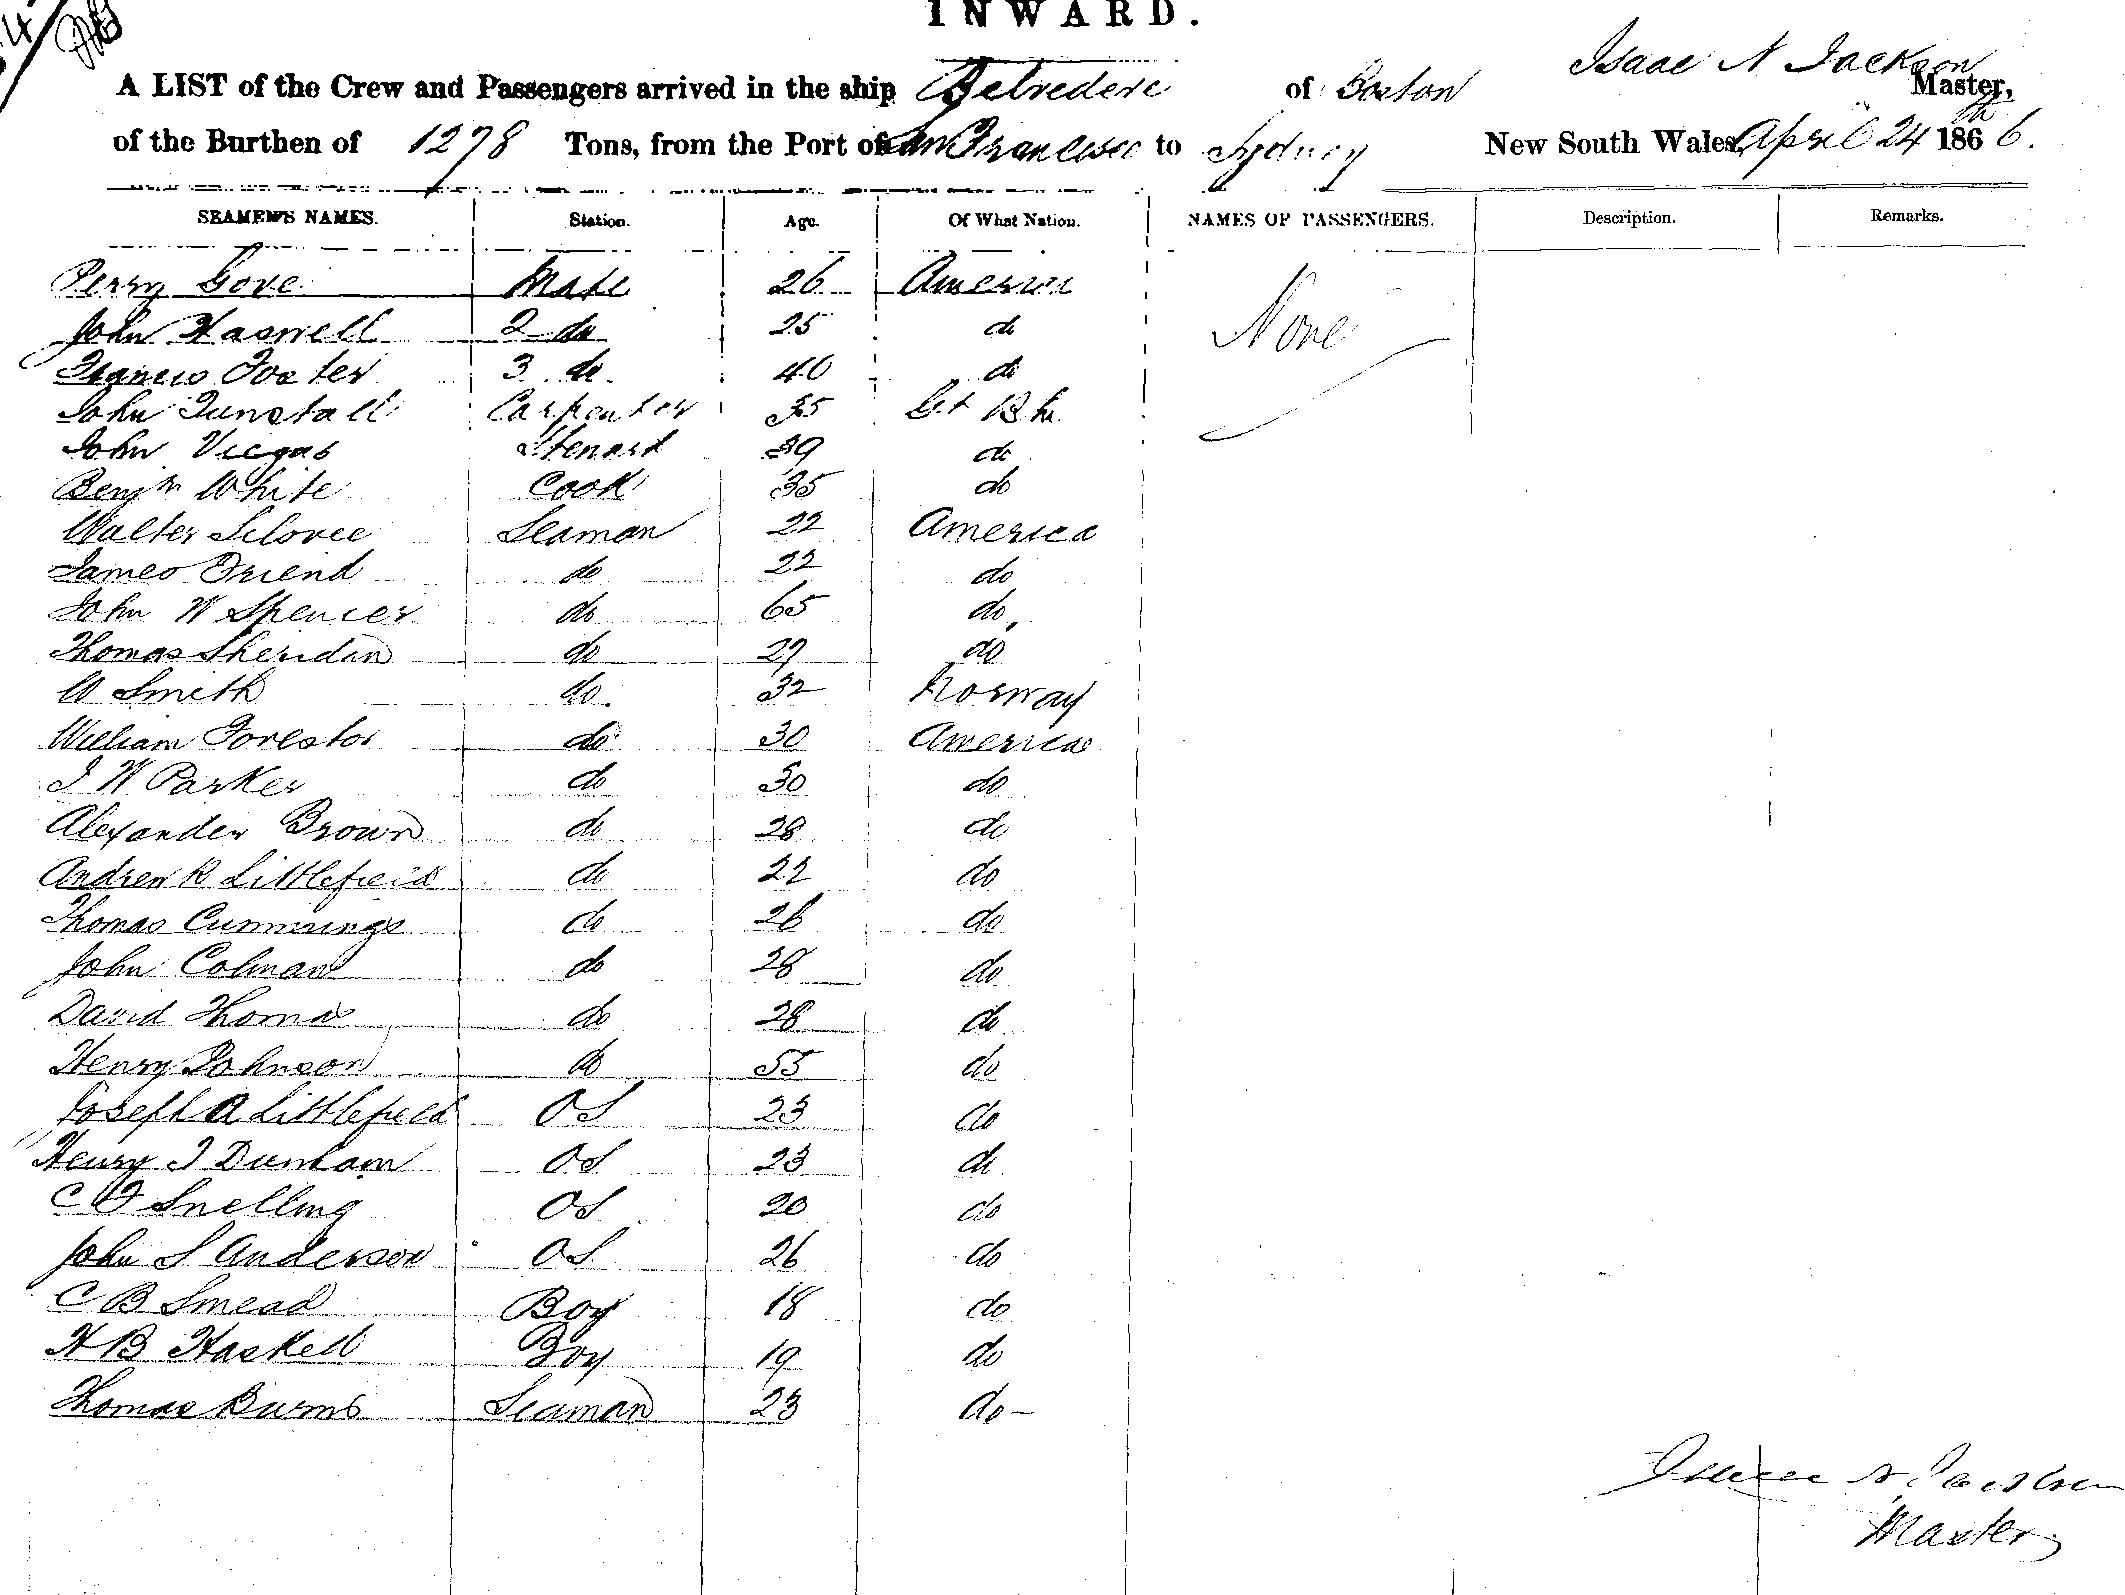 INWARD.
Isaac N Jackson
A LIST of the Crew and Passengers arrived in the ship Belvedere of Boston Master,
of the Burthen of 1278 Tons, from the Port of San Francisco to Sydney New South Wales, April 24th 1866.
SEAMEN'S NAMES. Station. Age. Of What Nation. NAMES OF PASSENGERS. Description. Remarks.
Perry Gove Mate 26 America
None
John Haswell 2 do 25 do
Francis Foster 3 do 40 do
John Tunstall Carpenter 35 Gt Bn
John Viegas Steward 39 do
Benjn White Cook 35 do
Walter Seaman 22 America
James Friend do 22 do
John W Spencer do 65 do
Thomas Sheridan do 29 do
W Smith do 32 Norway
William Forestor do 30 America
J W Parker do 30 do
Alexander Brown do 28 do
Andrew R Littlefield do 22 do
Thomas Cummings do 26 do
John Colman do 28 do
David Thomas do 28 do
Henry Johnson do 55 do
Joseph A Littlefield OS 23 do
Henry J Dunham OS 23 do
C F Snelling OS 20 do
John S Anderson OS 26 do
C B Smead Boy 18 do
H B Haskell Boy 19 do
Thomas Burns Seaman 23 do -
Isaac N Jackson
Master